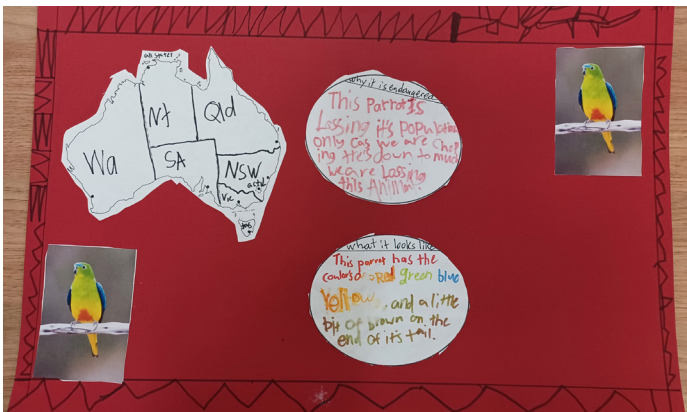 Nt
Qld
Wa
SA
NSW
act
Vic
why it is endangered
This Parrot Is
Lossing it's Population
only cas we are Chop
ing tres down to much
we are Lossing
this Animal.
what it looks like
This parrot has the
Red green blue
Yellow, and a little
bit of brown on the
end of it's tail.